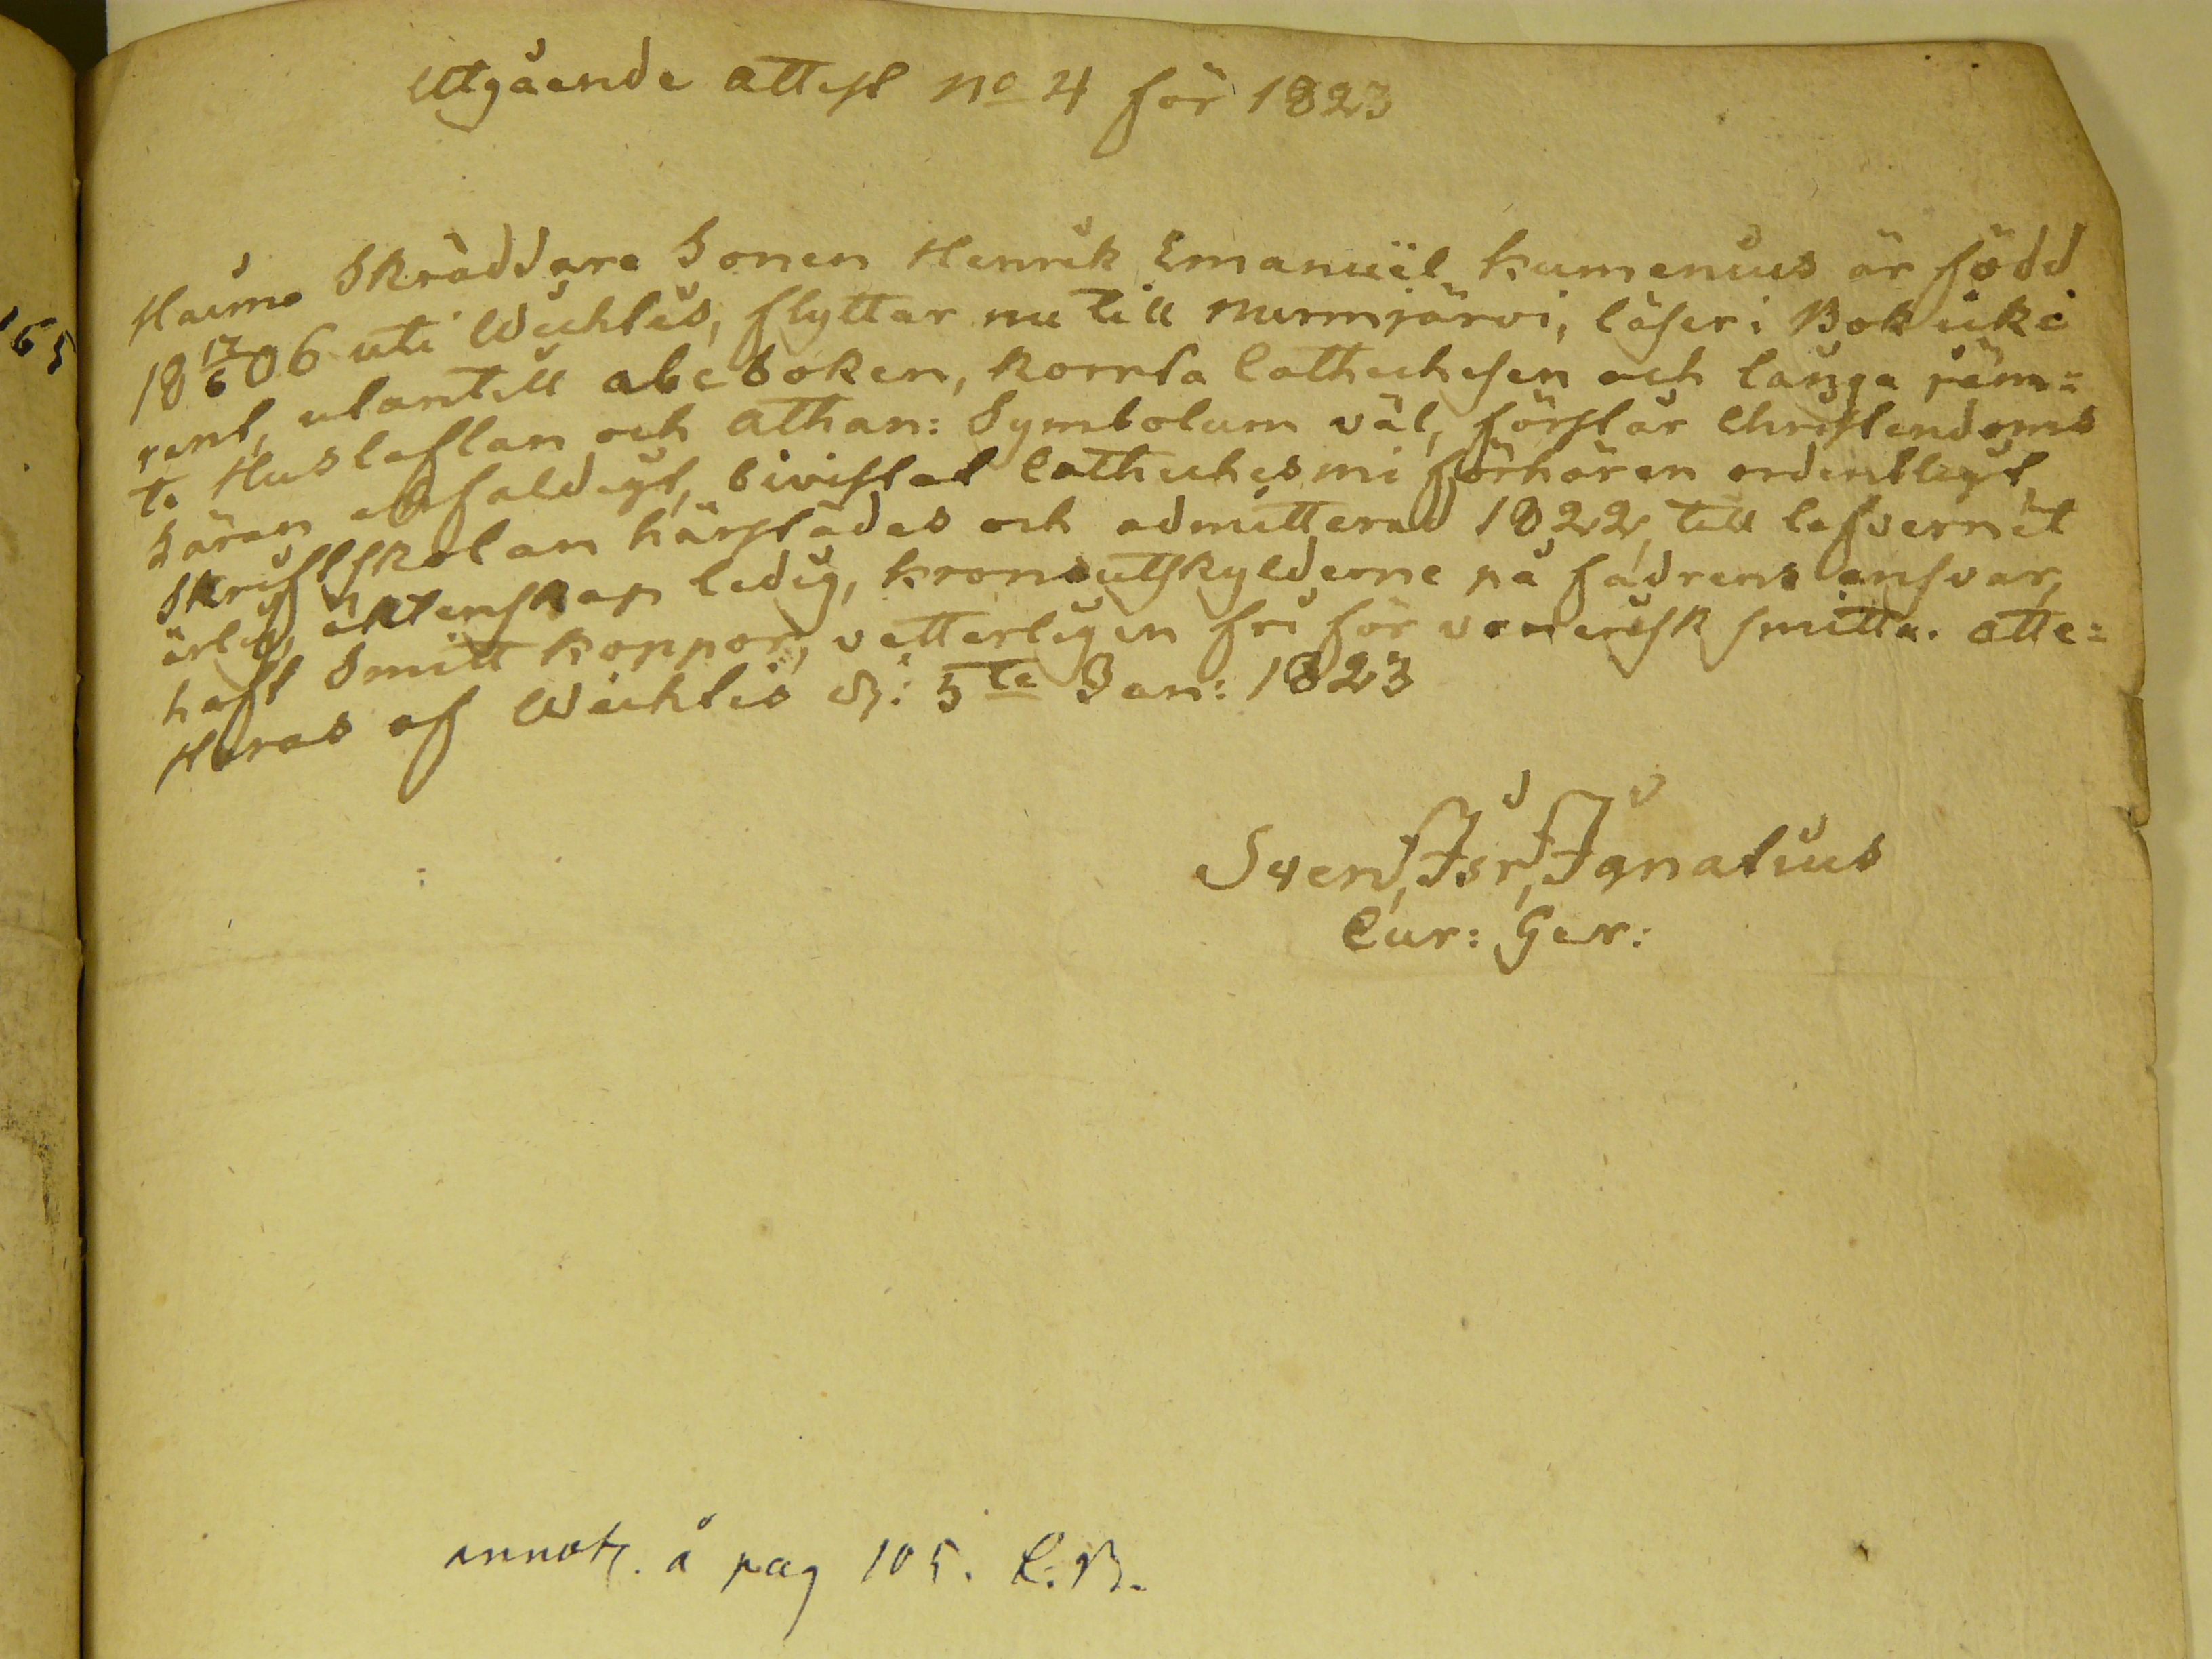 Utgående attest No 4 för 1823
Haimo Skräddare Sonen Henrik Emanuël Kumenius är född
18 17/6 06 uti Wichtis, flyttar nu till Nurmijärvi, läser i Bok icke
rent, utantill abc boken, korrta Cathechesen och långa jäm-
te Hustaflan och Athan: Symbolum väl, förstår Christendoms
Läran enfaldigt, bivistat Cathechismi förhören ordentligt
Skriftskolan härstädes och admitterad 1822, till lefvernet
ärlig, äktenskap ledig, kronoutskylderne på fadrens ansvar,
haft Smitt koppor, vetterligen fri för venerisk smitta. Atte-
steras af Wichtis d: 5te Jan: 1823
Sven Isr Ignatius
Cur: Ger:
annot. å pag 105. K.B.
165